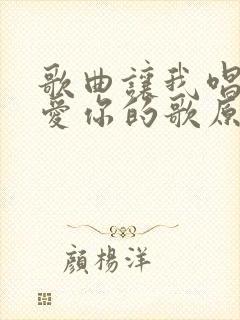 歌曲讓我唱
愛你的歌原
顏楊洋